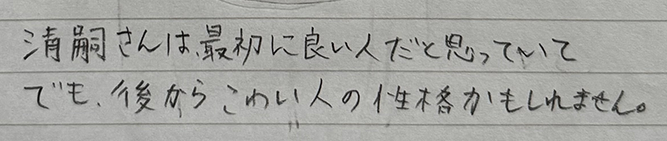 清嗣さんは、最初に良い人だと思っていて
でも、後からこわい人の性格かもしれません。